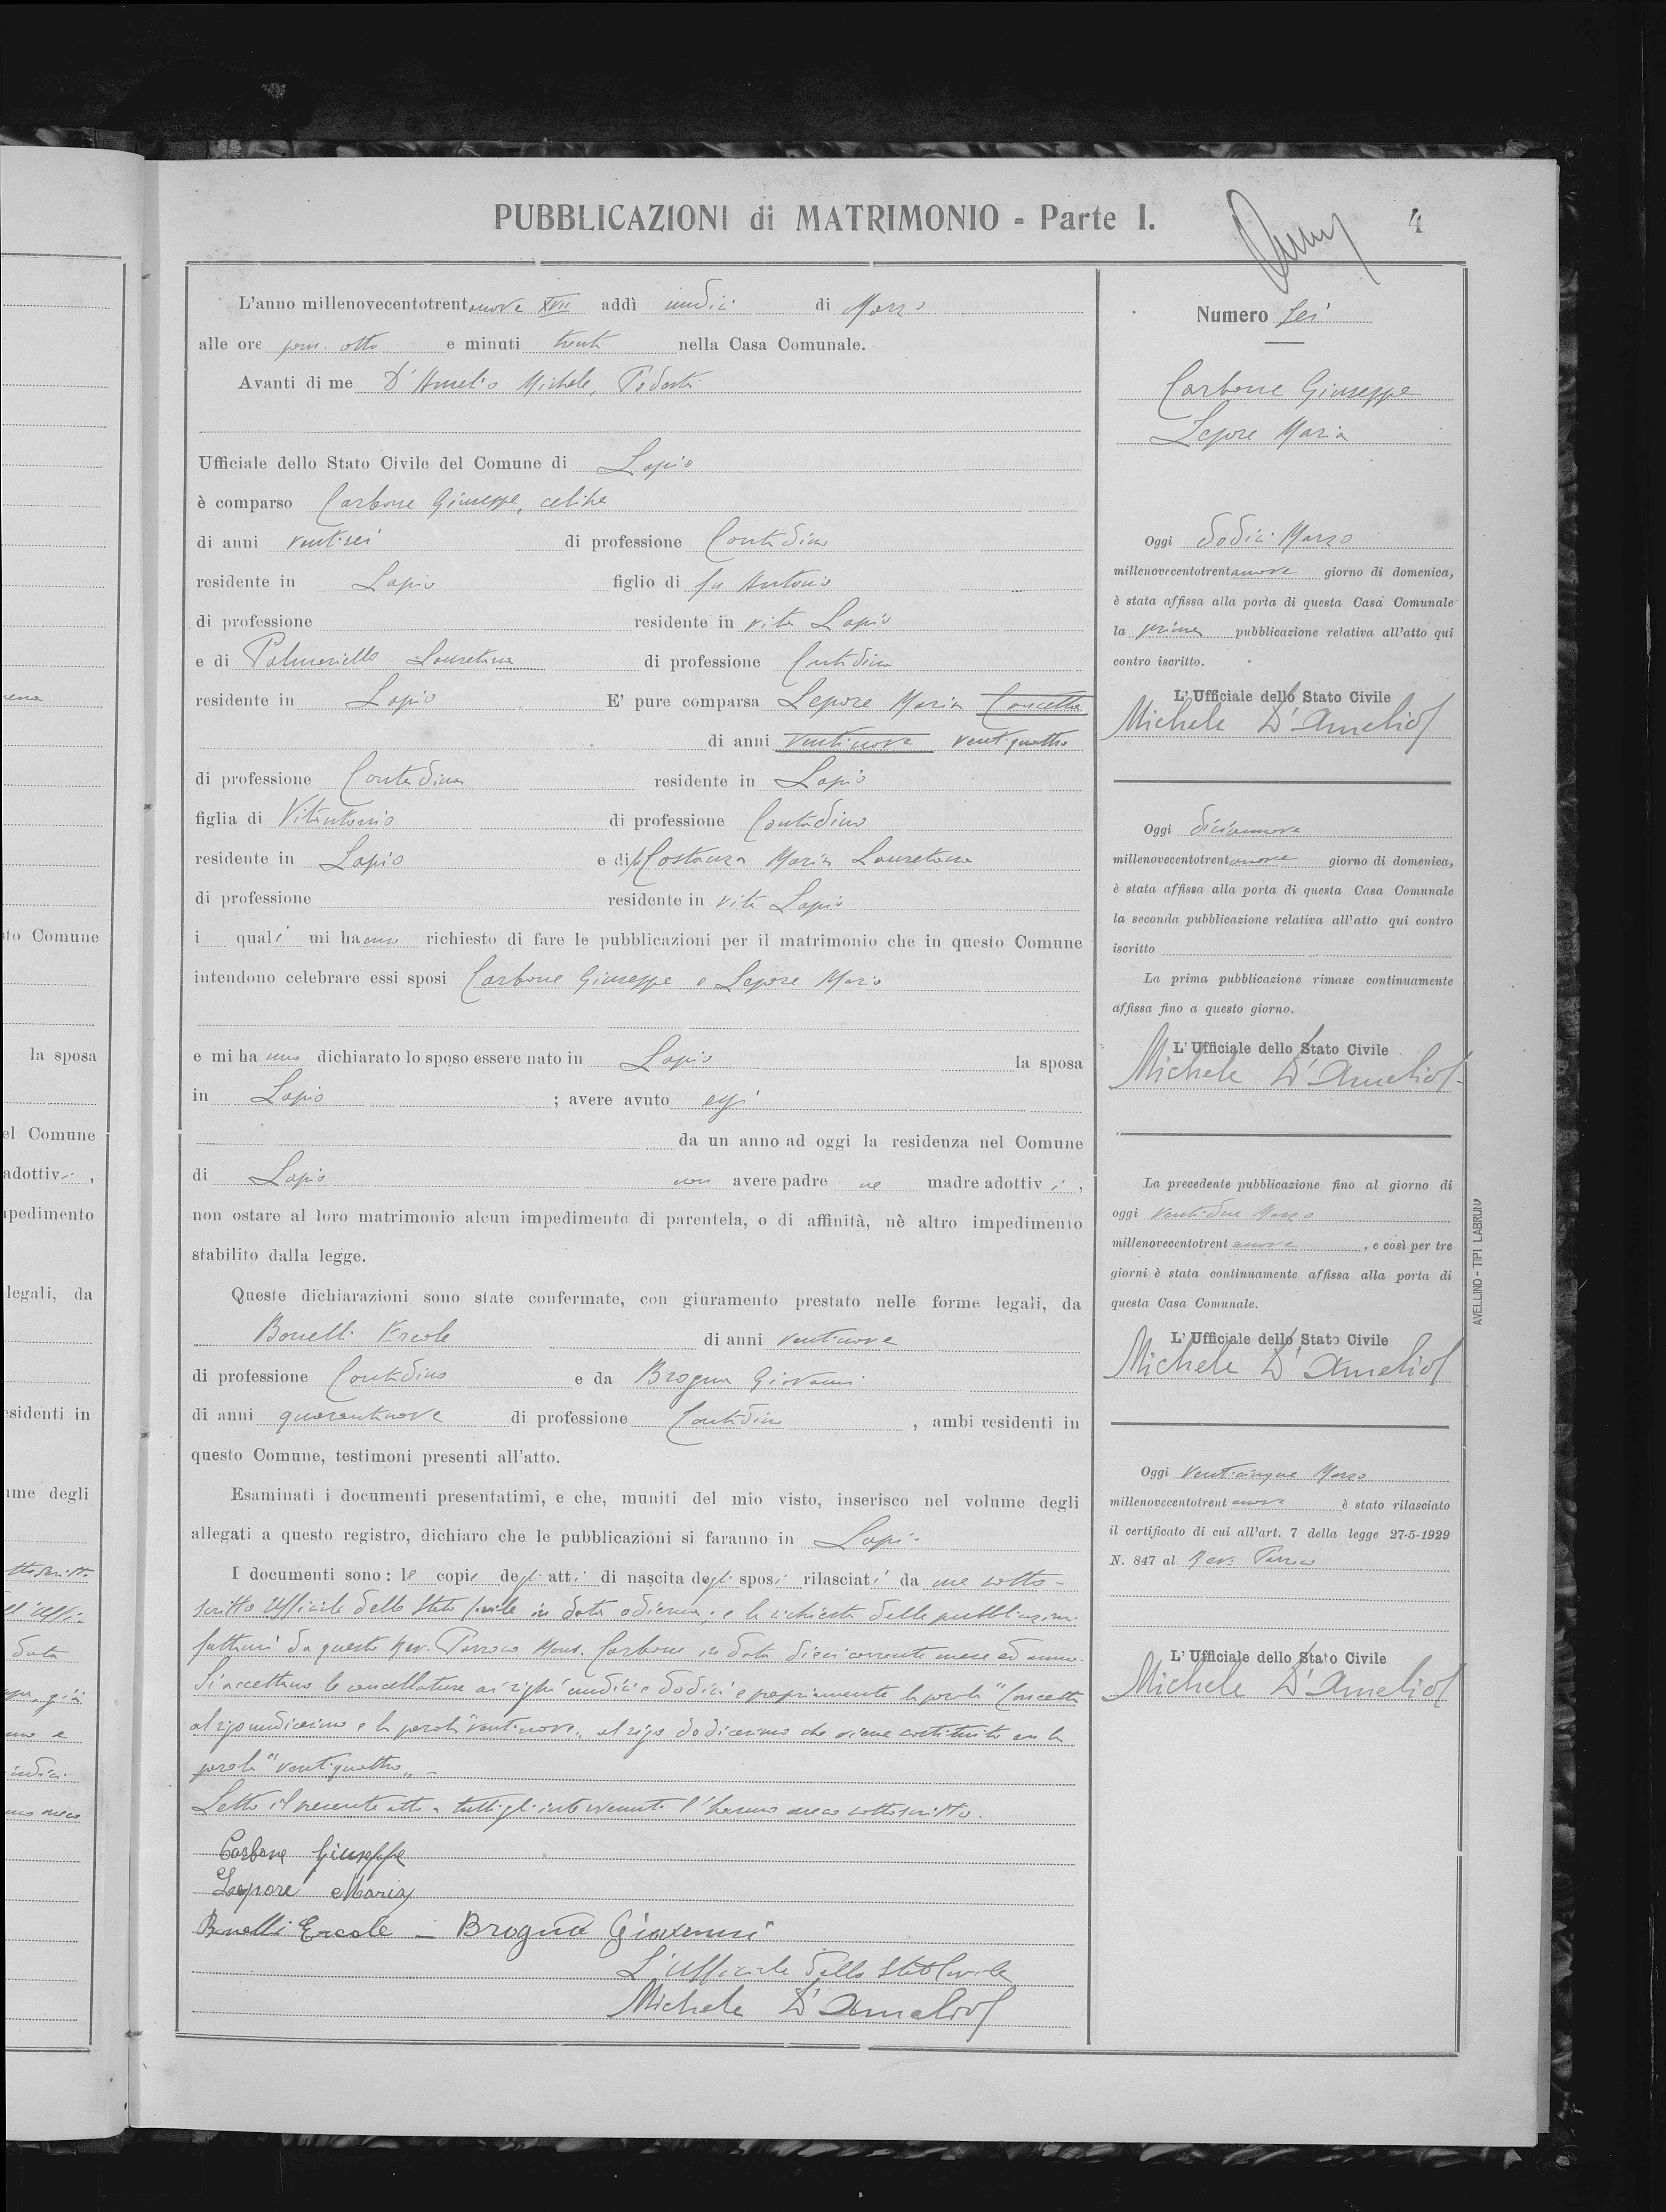 PUBBLICAZIONI di MATRIMONIO - Parte I.
4
L'anno millenovecentotrentanove XVII addì undici di Marzo
alle ore pom. otto e minuti trenta nella Casa Comunale.
Avanti di me D'Amelio Michele, Podestà
Ufficiale dello Stato Civile del Comune di Lapio
è comparso Carbone Giuseppe, celibe
di anni ventisei di professione Contadino
residente in Lapio figlio di fu Antonio
di professione residente in vita Lapio
e di Palmariello Lauretana di professione Contadina
residente in Lapio E' pure comparsa Lepore Maria Concetta
di anni ventinove ventiquattro
di professione Contadina residente in Lapio
figlia di Vitantonio di professione Contadino
residente in Lapio e di fu Costanza Maria Lauretana
di professione residente in vita Lapio
i quali mi hanno richiesto di fare le pubblicazioni per il matrimonio che in questo Comune
intendono celebrare essi sposi Carbone Giuseppe e Lepore Maria
e mi hanno dichiarato lo sposo essere nato in Lapio la sposa
in Lapio ; avere avuto essi
da un anno ad oggi la residenza nel Comune
di Lapio non avere padre ne madre adottivi,
non ostare al loro matrimonio alcun impedimento di parentela, o di affinità, nè altro impedimento
stabilito dalla legge.
Queste dichiarazioni sono state confermate, con giuramento prestato nelle forme legali, da
Bonelli Ercole di anni ventinove
di professione Contadino e da Brogna Giovanni
di anni quarantanove di professione Contadino, ambi residenti in
questo Comune, testimoni presenti all'atto.
Esaminati i documenti presentatimi, e che, muniti del mio visto, inserisco nel volume degli
allegati a questo registro, dichiaro che le pubblicazioni si faranno in Lapio
I documenti sono: le copie degli atti di nascita degli sposi rilasciati da me sotto-
scritto Ufficiale dello Stato Civile in data odierna; e la richiesta delle pubblicazioni
fattami da questo Rev. Parroco Mons. Carbone in data dieci corrente mese ed anno.
Si accettano le cancellature ai righi undici e dodici e propriamente la parola "Concetta
al rigo undicesimo e la parola "ventinove" al rigo dodicesimo che viene sostituita con la
parola "ventiquattro" -
Letto il presente atto a tutti gli intervenuti l'hanno meco sottoscritto.
Carbone Giuseppe
Lepore Maria
Bonelli Ercole - Brogna Giovanni
L'Ufficiale dello Stato Civile
Michele D'Amelio
Numero Sei
Carbone Giuseppe
Lepore Maria
Oggi dodici Marzo
millenovecentotrentanove giorno di domenica,
è stata affissa alla porta di questa Casa Comunale
la prima pubblicazione relativa all'atto qui
contro iscritto.
L'Ufficiale dello Stato Civile
Michele D'Amelio
Oggi diciannove
millenovecentotrentanove giorno di domenica,
è stata affissa alla porta di questa Casa Comunale
la seconda pubblicazione relativa all'atto qui contro
iscritto
La prima pubblicazione rimase continuamente
affissa fino a questo giorno.
L'Ufficiale dello Stato Civile
Michele D'Amelio
La precedente pubblicazione fino al giorno di
oggi ventidue Marzo
millenovecentotrentanove, e così per tre
giorni è stata continuamente affissa alla porta di
questa Casa Comunale.
L'Ufficiale dello Stato Civile
Michele D'Amelio
Oggi venticinque Marzo
millenovecentotrentanove è stato rilasciato
il certificato di cui all'art. 7 della legge 27-5-1929
N. 847 al Rev. Parroco
L'Ufficiale dello Stato Civile
Michele D'Amelio
AVELLINO - TIPI LABRUNA
sto Comune
la sposa
el Comune
adottivi,
npedimento
legali, da
esidenti in
ume degli